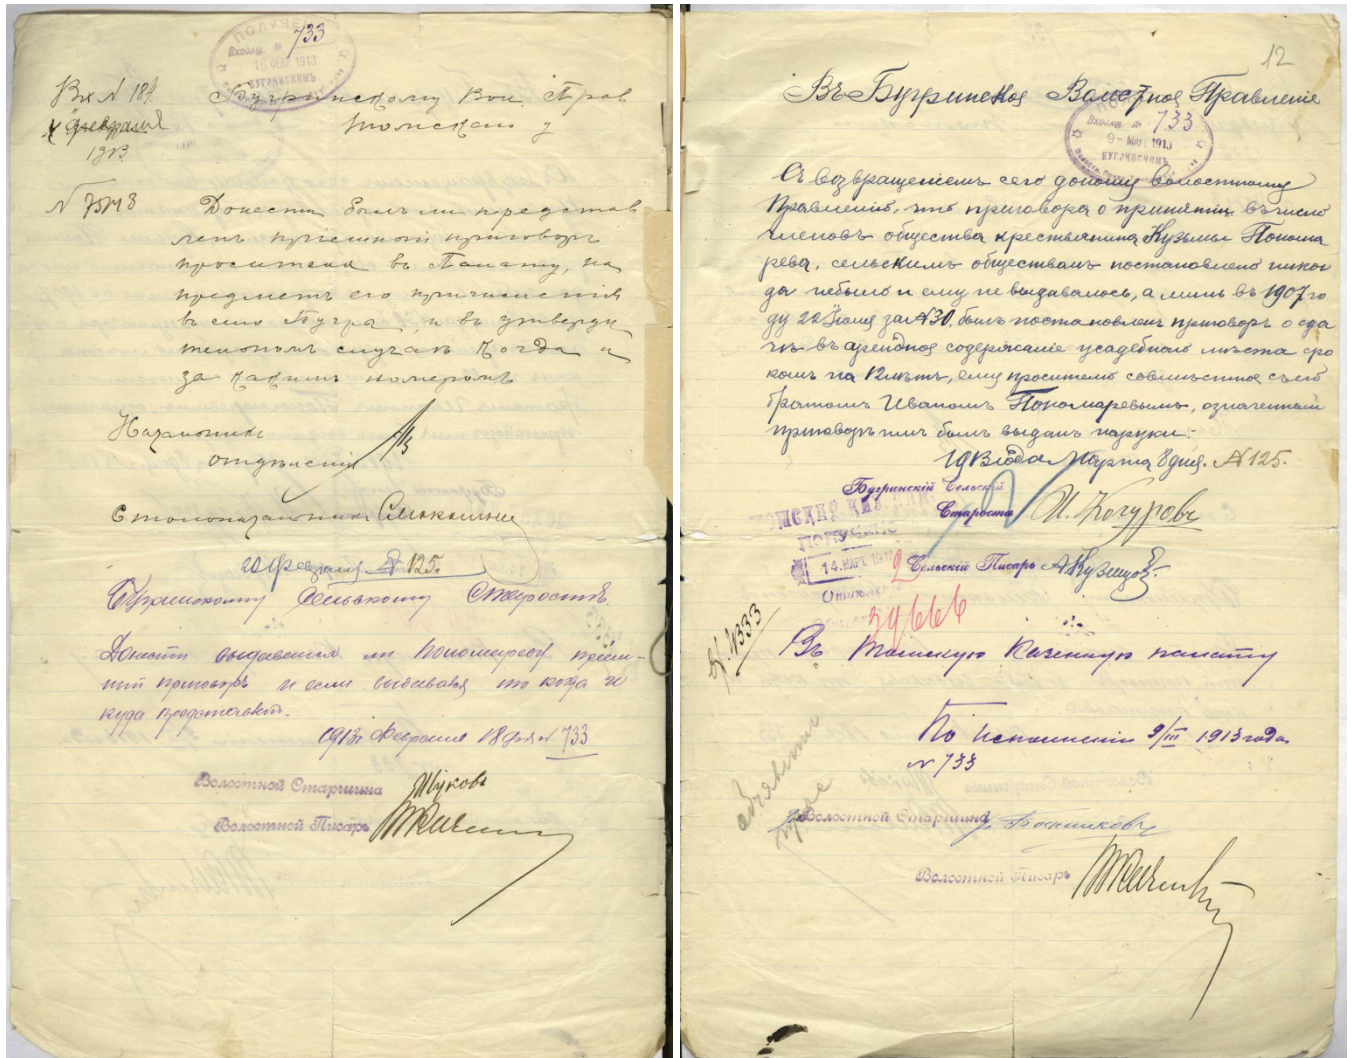 ПОЛУЧЕНО
Входящ. № 733
16 ФЕВ 1913
БУГРИНСКИМЪ
Вх N 184
февраля
1913
Бугринскому Вол. Прав
Томскаго у
N 75148
Донести былъ ли представ
ленъ пріемный приговоръ
просителя въ Палату, на
предметъ его причисленія
въ село Бугры, и въ утверди
тельномъ случаѣ когда и
за какимъ номеромъ
Начальникъ
отдѣленія
Столоначальникъ
20 Февраля № 125.
Бугринскому Сельскому Старостѣ.
Донести выдавался ли Пономареву прием-
ный приговоръ и если выдавался то когда и
куда представленъ.
1913г Февраля 18 дня N 733
Волостной Старшина Жуковъ
Волостной Писарь
12
Въ Бугринское Волостное Правленіе
Входящ. № 733
9 - МАР 1913
БУГРИНСКИМЪ
Съ возвращеніемъ сего доношу Волостному
Правленію, что приговора о принятіи въ число
членовъ общества крестьянина Кузьмы Понома
рева, сельскимъ обществомъ постановлено никог
да небыло и ему не выдавалось, а лишь въ 1907 го
ду 22 Іюля за №30, былъ постановленъ приговоръ о сда
чѣ въ арендное содержаніе усадебнаго мѣста сро
комъ на 12 лѣтъ, ему просителю совмѣстно съ его
братомъ Иваномъ Пономаревымъ, означенный
приговоръ имъ былъ выданъ наруки.
1913 года Марта 8 дня. № 125.
Бугринскій Сельскій
Староста И. Кочуровъ
ТОМСКАЯ КАЗ
ПОЛУЧЕНО
14. МАРТ. 1913
Сельскій Писарь А. Кузнецовъ.
39666
вх. N 333
Въ Томскую Казенную палату
По исполненіи 9/III 1913 года
N 733
Волостной Старшина
Волостной Писарь